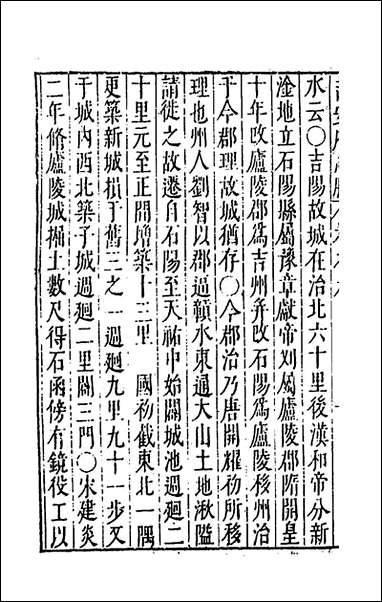 水云〇吉陽故城在治北六十里後漢和帝分新
淦地立石陽縣屬豫章獻帝刋屬廬陵郡隋開皇
十年改廬陵郡為吉州并改石陽為廬陵移州治
于今郡理故城猶存〇今郡治乃唐開耀初所移
理也州人劉智以郡逼贑水東通大山土地湫隘
請徙之故遷自石陽至天祐中始闢城池週廻二
十里元至正間增築十三里 國初截東北一隅
更築新城損于舊三之一週廻九里九十一步又
于城內西北築子城週廻二里闢三門〇宋建炎
二年脩廬陵城掘土數尺得石函傍有鏡役工以